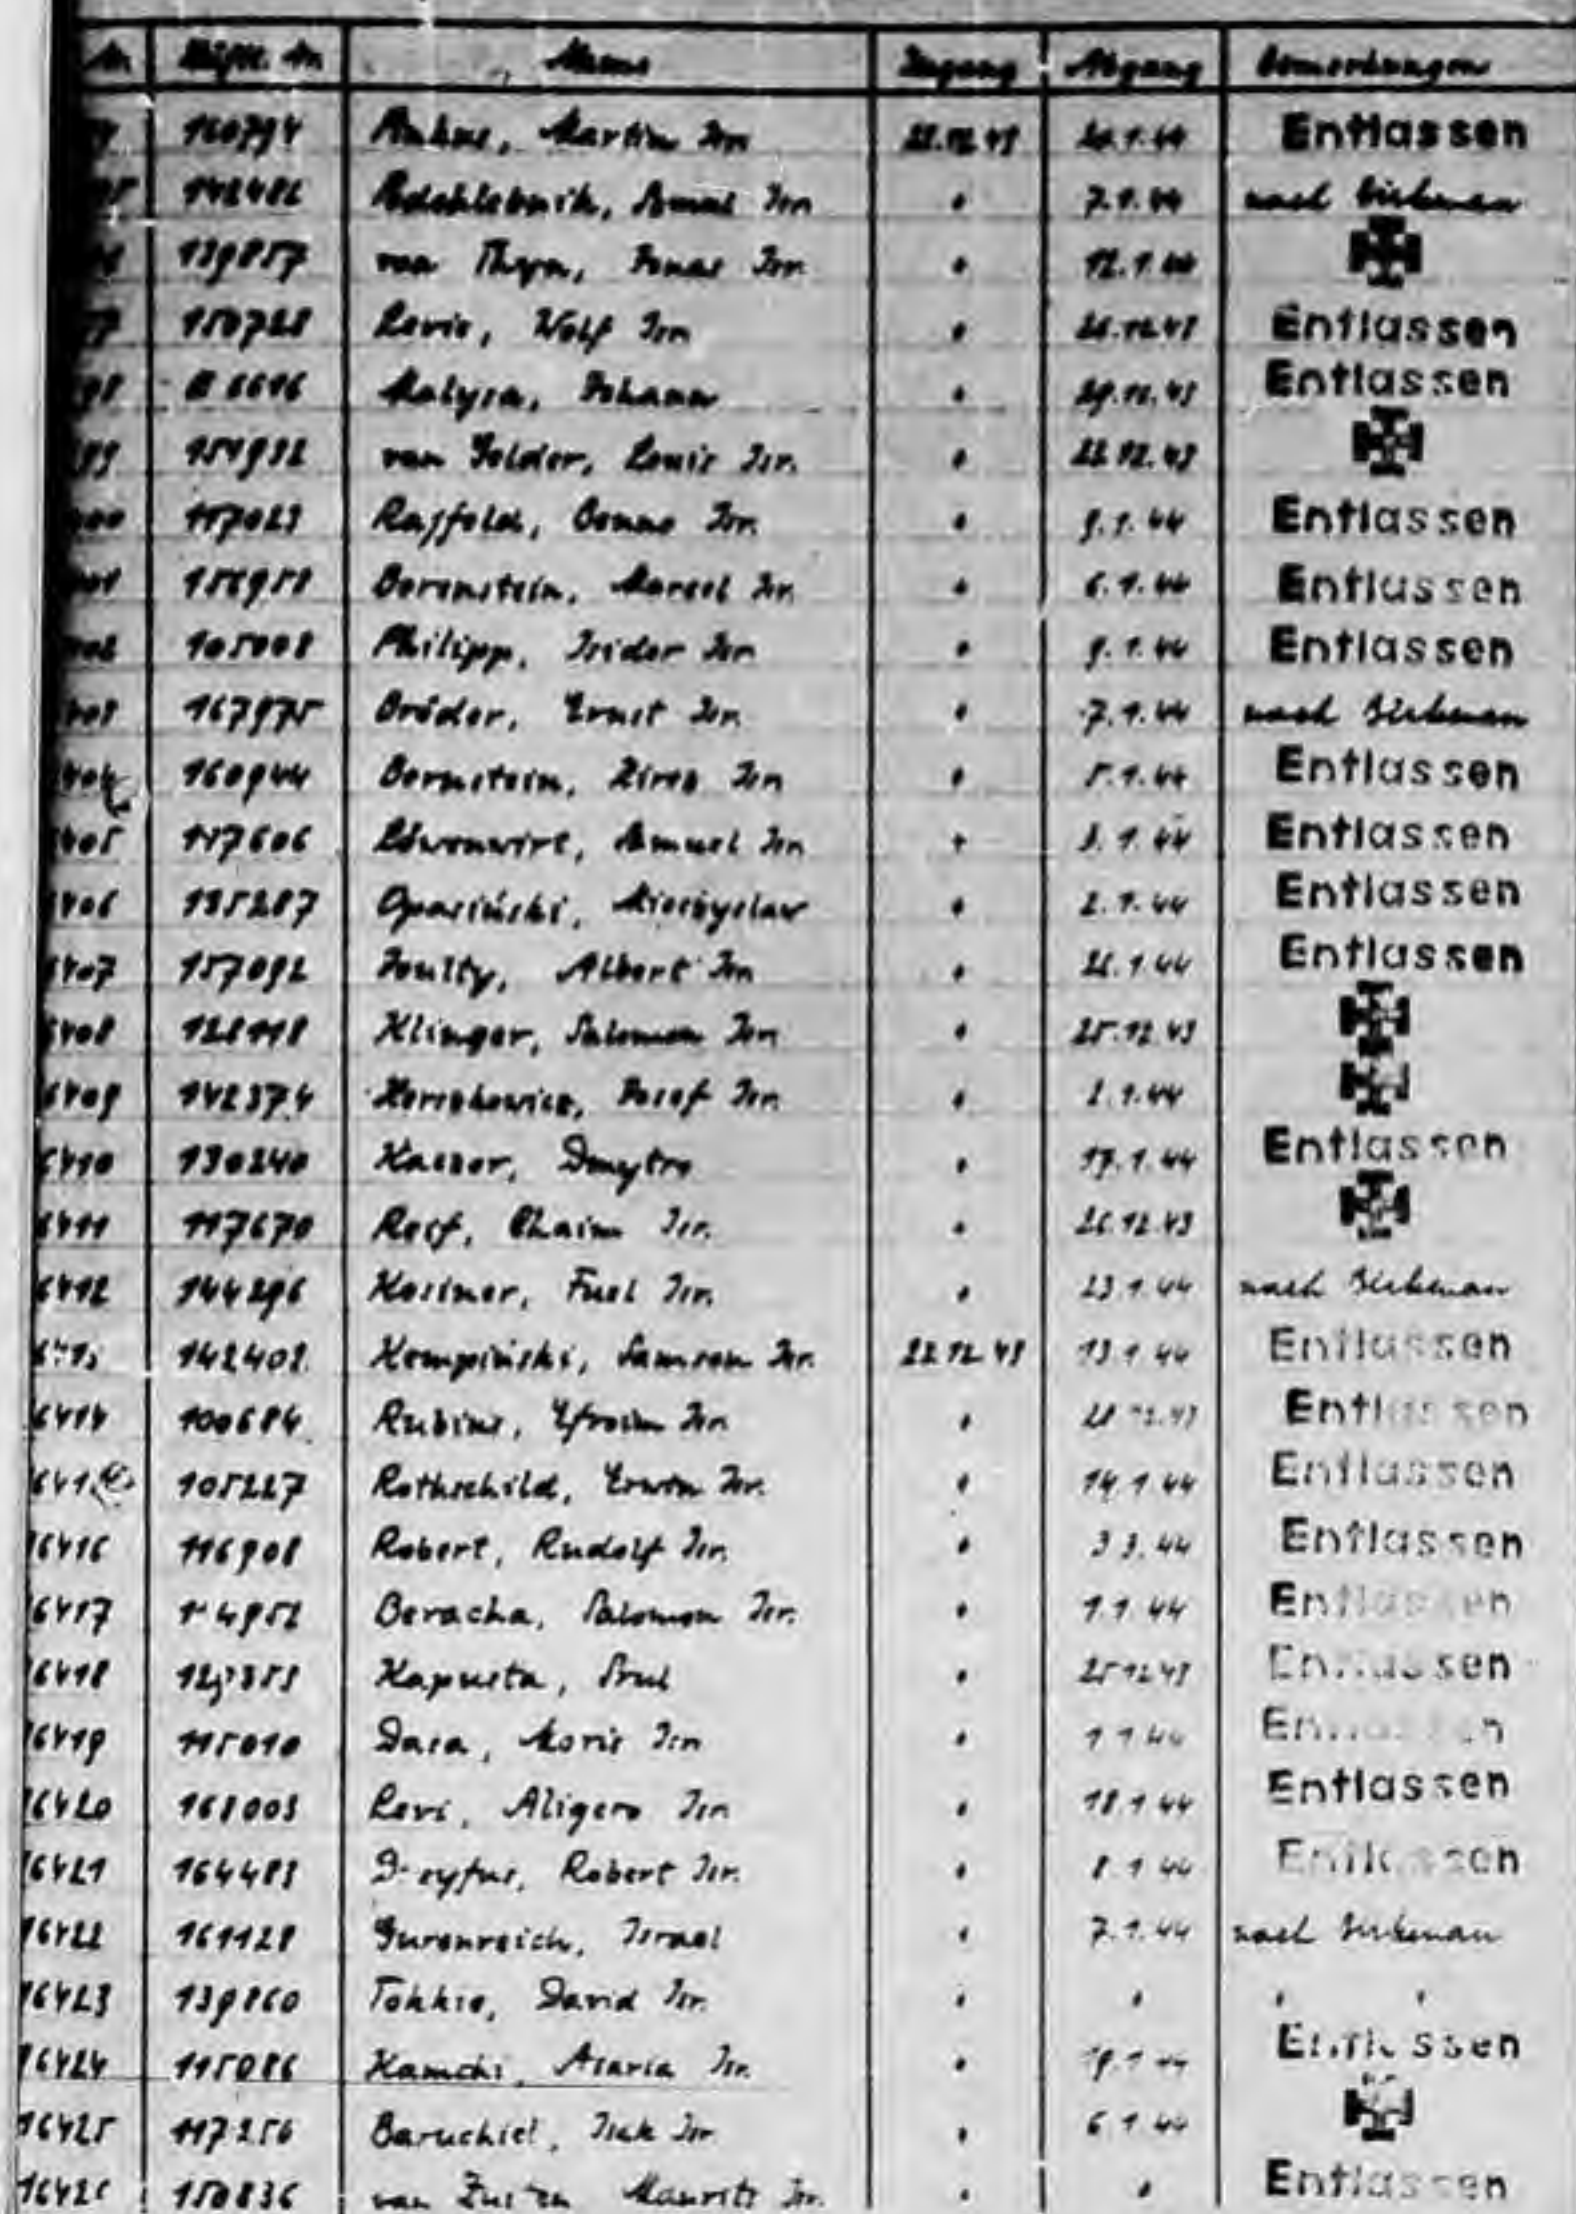 Nr. Häftl. Nr. Name Zugang Abgang Bemerkungen
160794 Martin Isr. 22.12.43 20.1.44 Entlassen
142482 Isr. " 7.1.44 nach Birkenau
139857 van Thyn, Jonas Isr. " 12.1.44
150728 Levie, Wolf Isr. " Entlassen
Malysa, Johann " 29.12.43 Entlassen
151932 van Gelder, Louis Isr. " 22.12.43
117023 Rajfeld, Benno Isr. " 9.1.44 Entlassen
156951 Borenstein, Marcel Isr. " 6.1.44 Entlassen
105008 Philipp, Isidor Isr. " 9.1.44 Entlassen
167975 Bröder, Ernst Isr. " 7.1.44 nach Birkenau
160944 Bernstein, Isr. " 5.1.44 Entlassen
117606 Löwenwirt, Samuel Isr. " 3.1.44 Entlassen
Opasiński, Mieczyslaw " 2.1.44 Entlassen
157092 Albert Isr. " 26.1.44 Entlassen
128118 Klinger, Salomon Isr. " 25.12.43
142374 Herszkowicz, Josef Isr. " 2.1.44
16410 130240 Kaszor, Dmytro " 17.1.44 Entlassen
6411 117670 Reif, Chaim Isr. " 26.12.43
6412 144296 Kostner, Isr. " 23.1.44 nach Birkenau
142402 Kempiński, Samson Isr. 22.12.43 13.1.44 Entlassen
6414 100684 Rubins, Efroim Isr. " 28.12.43 Entlassen
105227 Rothschild, Erwin Isr. " 14.1.44 Entlassen
16416 116908 Robert, Rudolf Isr. " 3.3.44 Entlassen
16417 Beracha, Salomon Isr. " 1.1.44 Entlassen
16418 Kapusta, Srul " 25.12.43 Entlassen
16419 115010 Dasa, Moris Isr. " 1.1.44 Entlassen
16420 168003 Levi, Aligero Isr. " 18.1.44 Entlassen
16421 164483 Dreyfus, Robert Isr. " 8.1.44 Entlassen
16422 161128 Gurenreich, Israel " 7.1.44 nach Birkenau
16423 139860 Tokkie, David Isr. " " " "
16424 115086 Kamchi, Asaria Isr. " 19.1.44 Entlassen
16425 117256 Baruchiel, Isak Isr. " 6.1.44
16426 150836 van Zuiden Maurits Isr. " " Entlassen